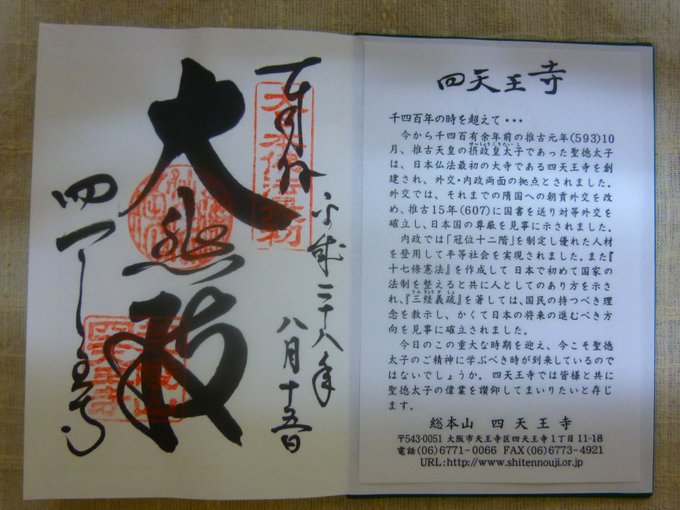 奉拝
平成二十八年
八月十五日
大悲殿
四天王寺
四天王寺
千四百年の時を超えて・・・
今から千四百有余年前の推古元年(593)10
月、推古天皇の摂政皇太子であった聖徳太子
は、日本仏法最初の大寺である四天王寺を創
建され、外交・内政両面の拠点とされました。
外交では、それまでの隋国への朝貢外交を改
め、推古15年(607)に国書を送り対等外交を
確立し、日本国の尊厳を見事に示されました。
内政では『冠位十二階』を制定し優れた人材
を登用して平等社会を実現されました。また『
十七條憲法』を作成して日本で初めて国家の
法制を整えると共に人としてのあり方を示さ
れ、『三経義疏』を著しては、国民の持つべき理
念を教示し、かくて日本の将来の進むべき方
向を見事に確立されました。
今日のこの重大な時期を迎え、今こそ聖徳
太子のご精神に学ぶべき時が到来しているので
はないでしょうか。四天王寺では皆様と共に
聖徳太子の偉業を讃仰してまいりたいと存じ
ます。
総本山 四天王寺
〒543-0051 大阪市天王寺区四天王寺1丁目11-18
電話(06)6771-0066 FAX(06)6773-4921
URL:http://www.shitennouji.or.jp